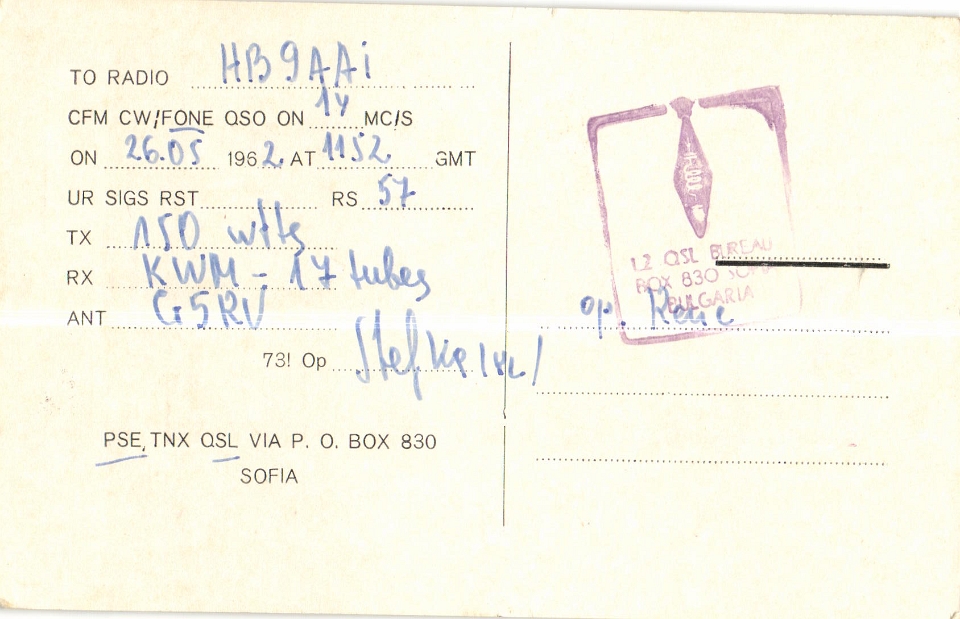 TO RADIO HB9AAi
CFM CW/FONE QSO ON 14 MC/S
ON 26.05 1962. AT 1152 GMT
UR SIGS RST RS 57
TX 150 wtts
RX KWM - 17 tubes
ANT G5RV
73! Op Stefka
PSE, TNX QSL VIA P. O. BOX 830
SOFIA
LZ QSL BUREAU
BOX 830 SOFIA
BULGARIA
op. Rene